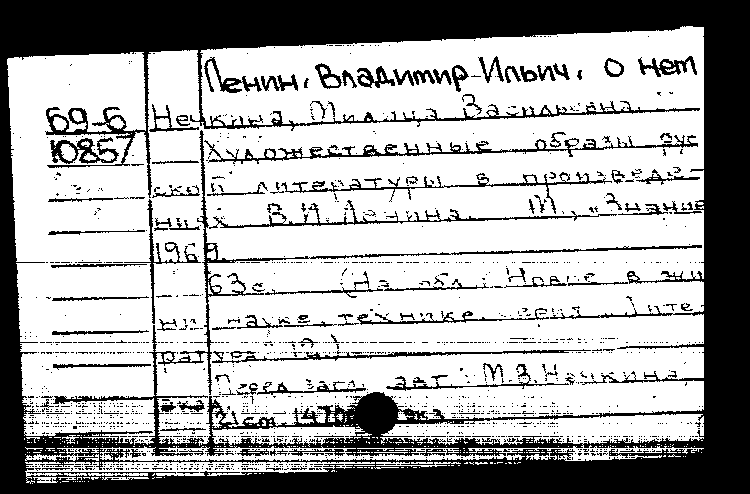 Ленин, Владимир Ильич, о нем
69-6 Нечкина, Милица Васильевна.
10857 Художественные образы рус
ской литературы в произведе-
ниях В.И. Ленина. М., „Знание
1969.
63с. (На обл.: Новое в жи
зни, науке, технике. Серия „Лите-
ратура" 12.)
Перед загл. авт: М.В. Нечкина,
экз